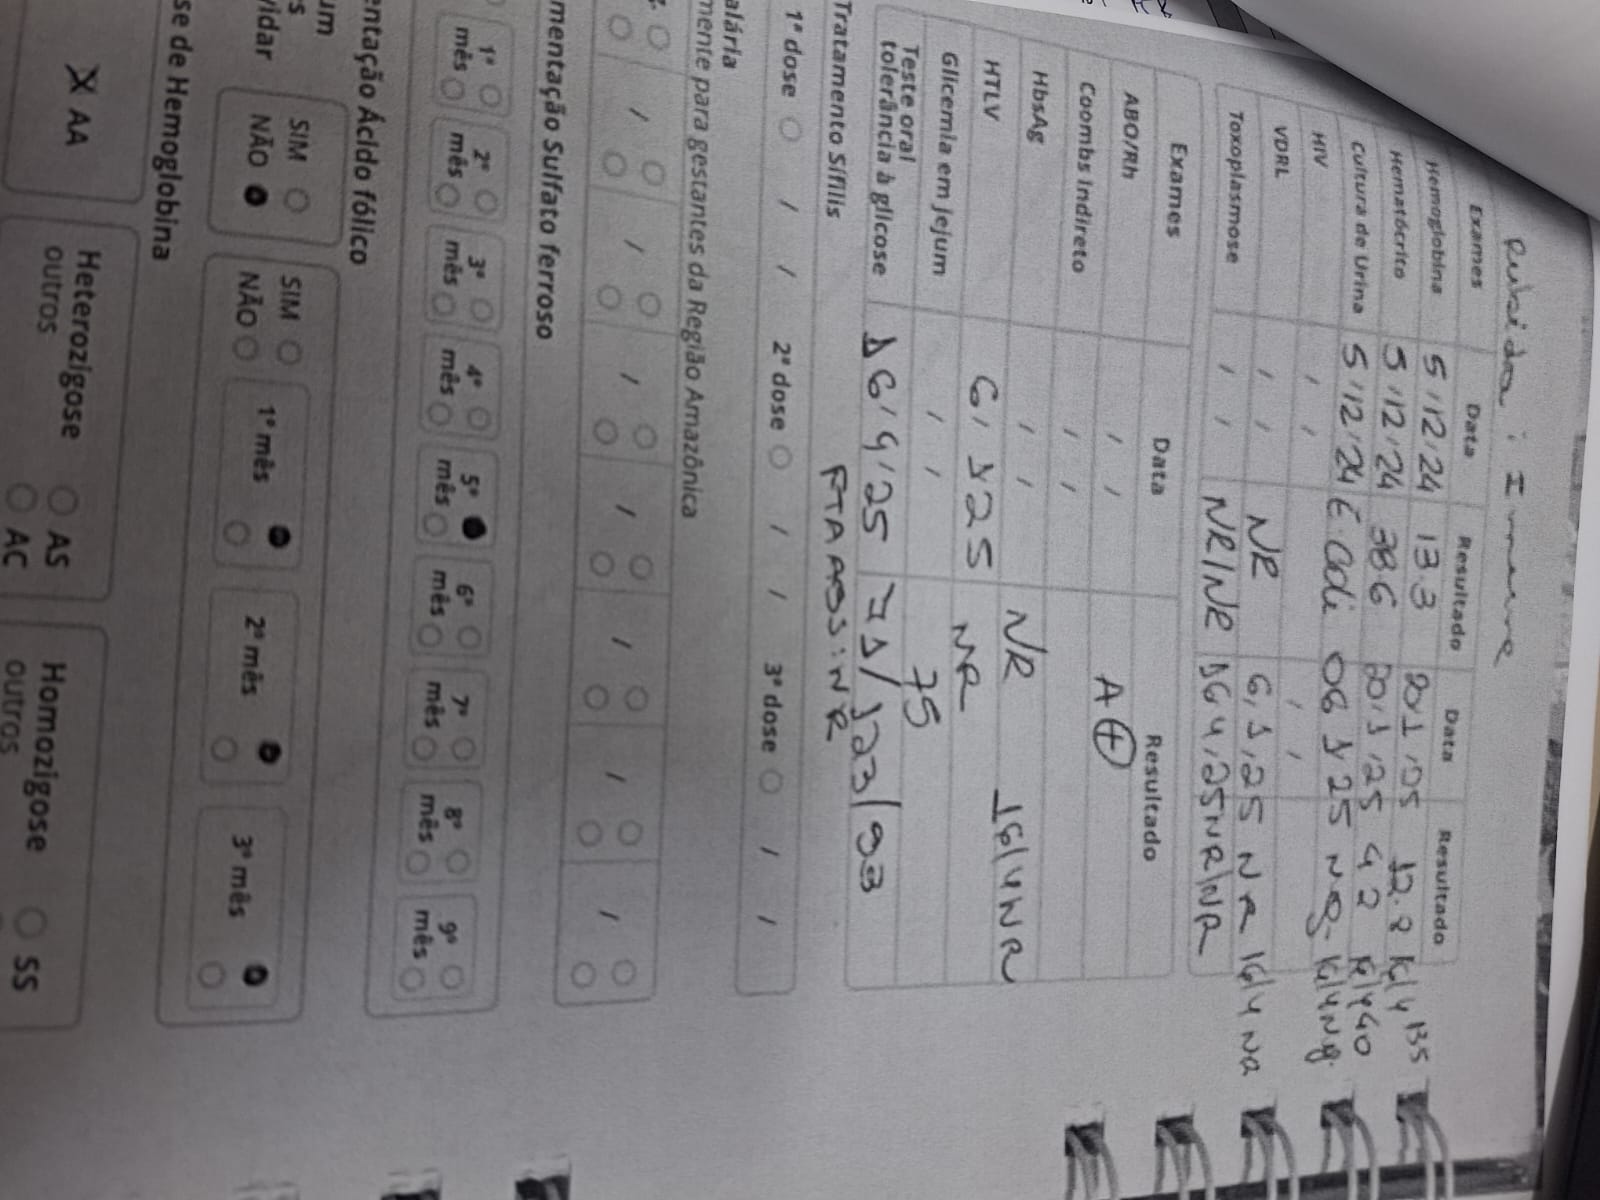 Rubéola: Imune
Exames Data Resultado Data Resultado
Hemoglobina 5/12/24 13.3 20/1/25 12.8 16/4 135
Hematócrito 5/12/24 386 20/1/25 42 16/4 40
Cultura de Urina 5/12/24 E. coli 06/1/25 Neg. 16/4 Ng.
HIV / / / /
VDRL / / NR 6/1/25 NR 16/4 NR
Toxoplasmose / / NR/NR 16/4/25 NR/NR
Exames Data Resultado
ABO/Rh / / A+
Coombs Indireto / /
HbsAg / / NR 16/4 NR
HTLV 6/1/25 NR
Glicemia em jejum / / 75
Teste oral
tolerância à glicose 16/4/25 71/123/93
Tratamento Sífilis FTA ABS: NR
1ª dose / / 2ª dose / / 3ª dose / /
alária
mente para gestantes da Região Amazônica
/ / / / / / /
mentação Sulfato ferroso
1º mês 2º mês 3º mês 4º mês 5º mês 6º mês 7º mês 8º mês 9º mês
entação Ácido fólico
SIM NÃO SIM NÃO 1º mês 2º mês 3º mês
se de Hemoglobina
X AA Heterozigose outros AS AC Homozigose outros SS